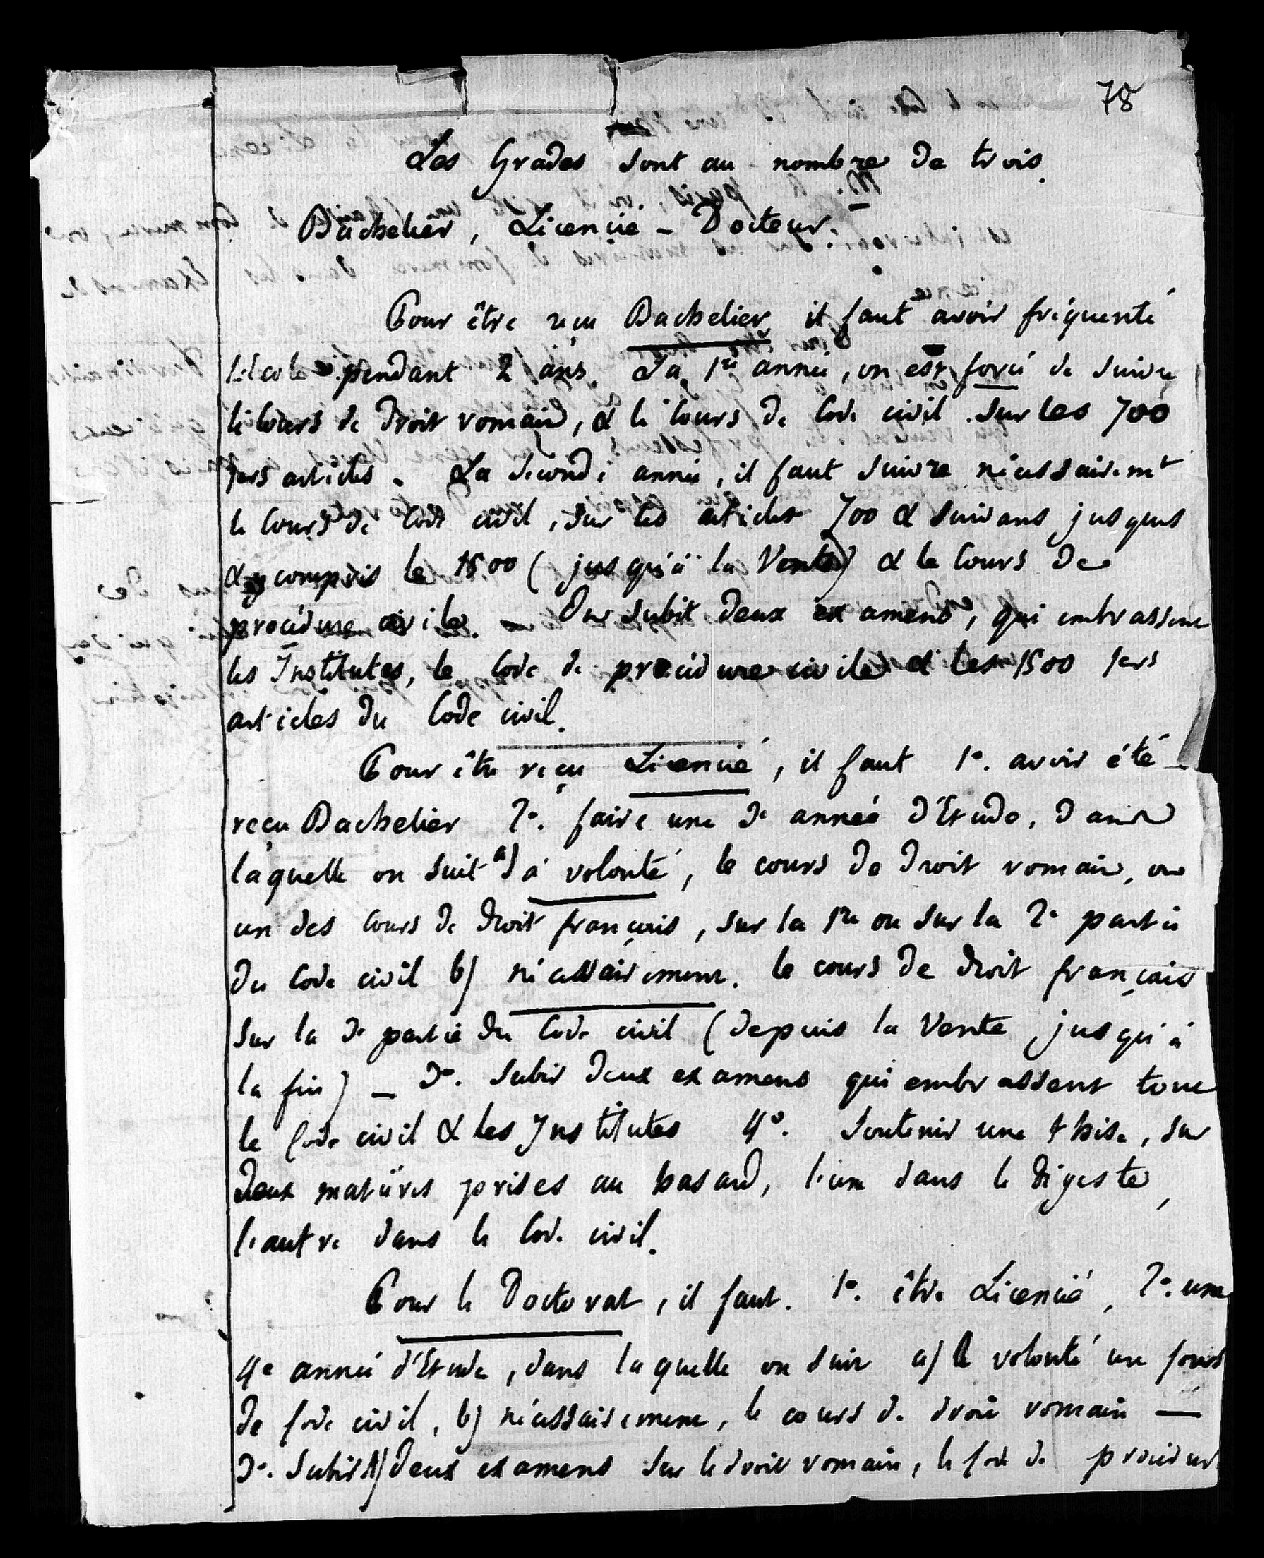 78
Les Grades sont au nombre de trois.
Bachelier, Licencié - Docteur.
Pour être reçu Bachelier il faut avoir fréquenté
l'école pendant 2 ans. La 1re année, on est forcé de suivre
le Cours de Droit romain, & le Cours de Code civil sur les 700
1ers articles. La seconde année, il faut suivre nécessairemt
le Cours de Code civil, sur les articles 700 & suivans jusques
& y compris le 1500 (jusqu'à la Vente) & le Cours de
procédure civile. On subit deux examens, qui embrassent
les Institutes, le Code de procédure civile & les 1500 1ers
articles du Code civil.
Pour être reçu Licencié, il faut 1o. avoir été
reçu Bachelier 2o. faire une 3e année d'Etude, dans
laquelle on suit a) à volonté, le cours de Droit romain, ou
un des Cours de Droit français, sur la 1re ou sur la 2e partie
du Code civil b) nécessairement. le cours de Droit français
sur la 3e partie du Code civil (depuis la Vente jusqu'à
la fin) - 3o. Subir deux examens qui embrassent tout
le Code civil & les Institutes 4o. Soutenir une thèse, sur
deux matières prises au hasard, l'une dans le Digeste,
l'autre dans le Code civil.
Pour le Doctorat, il faut. 1o. être Licencié, 2o. une
4e année d'Etude, dans laquelle on suit a) à volonté un Cours
de Code civil, b) nécessairement, le cours de droit romain —
3o. Subir deux examens sur le droit romain, le Code de procédure